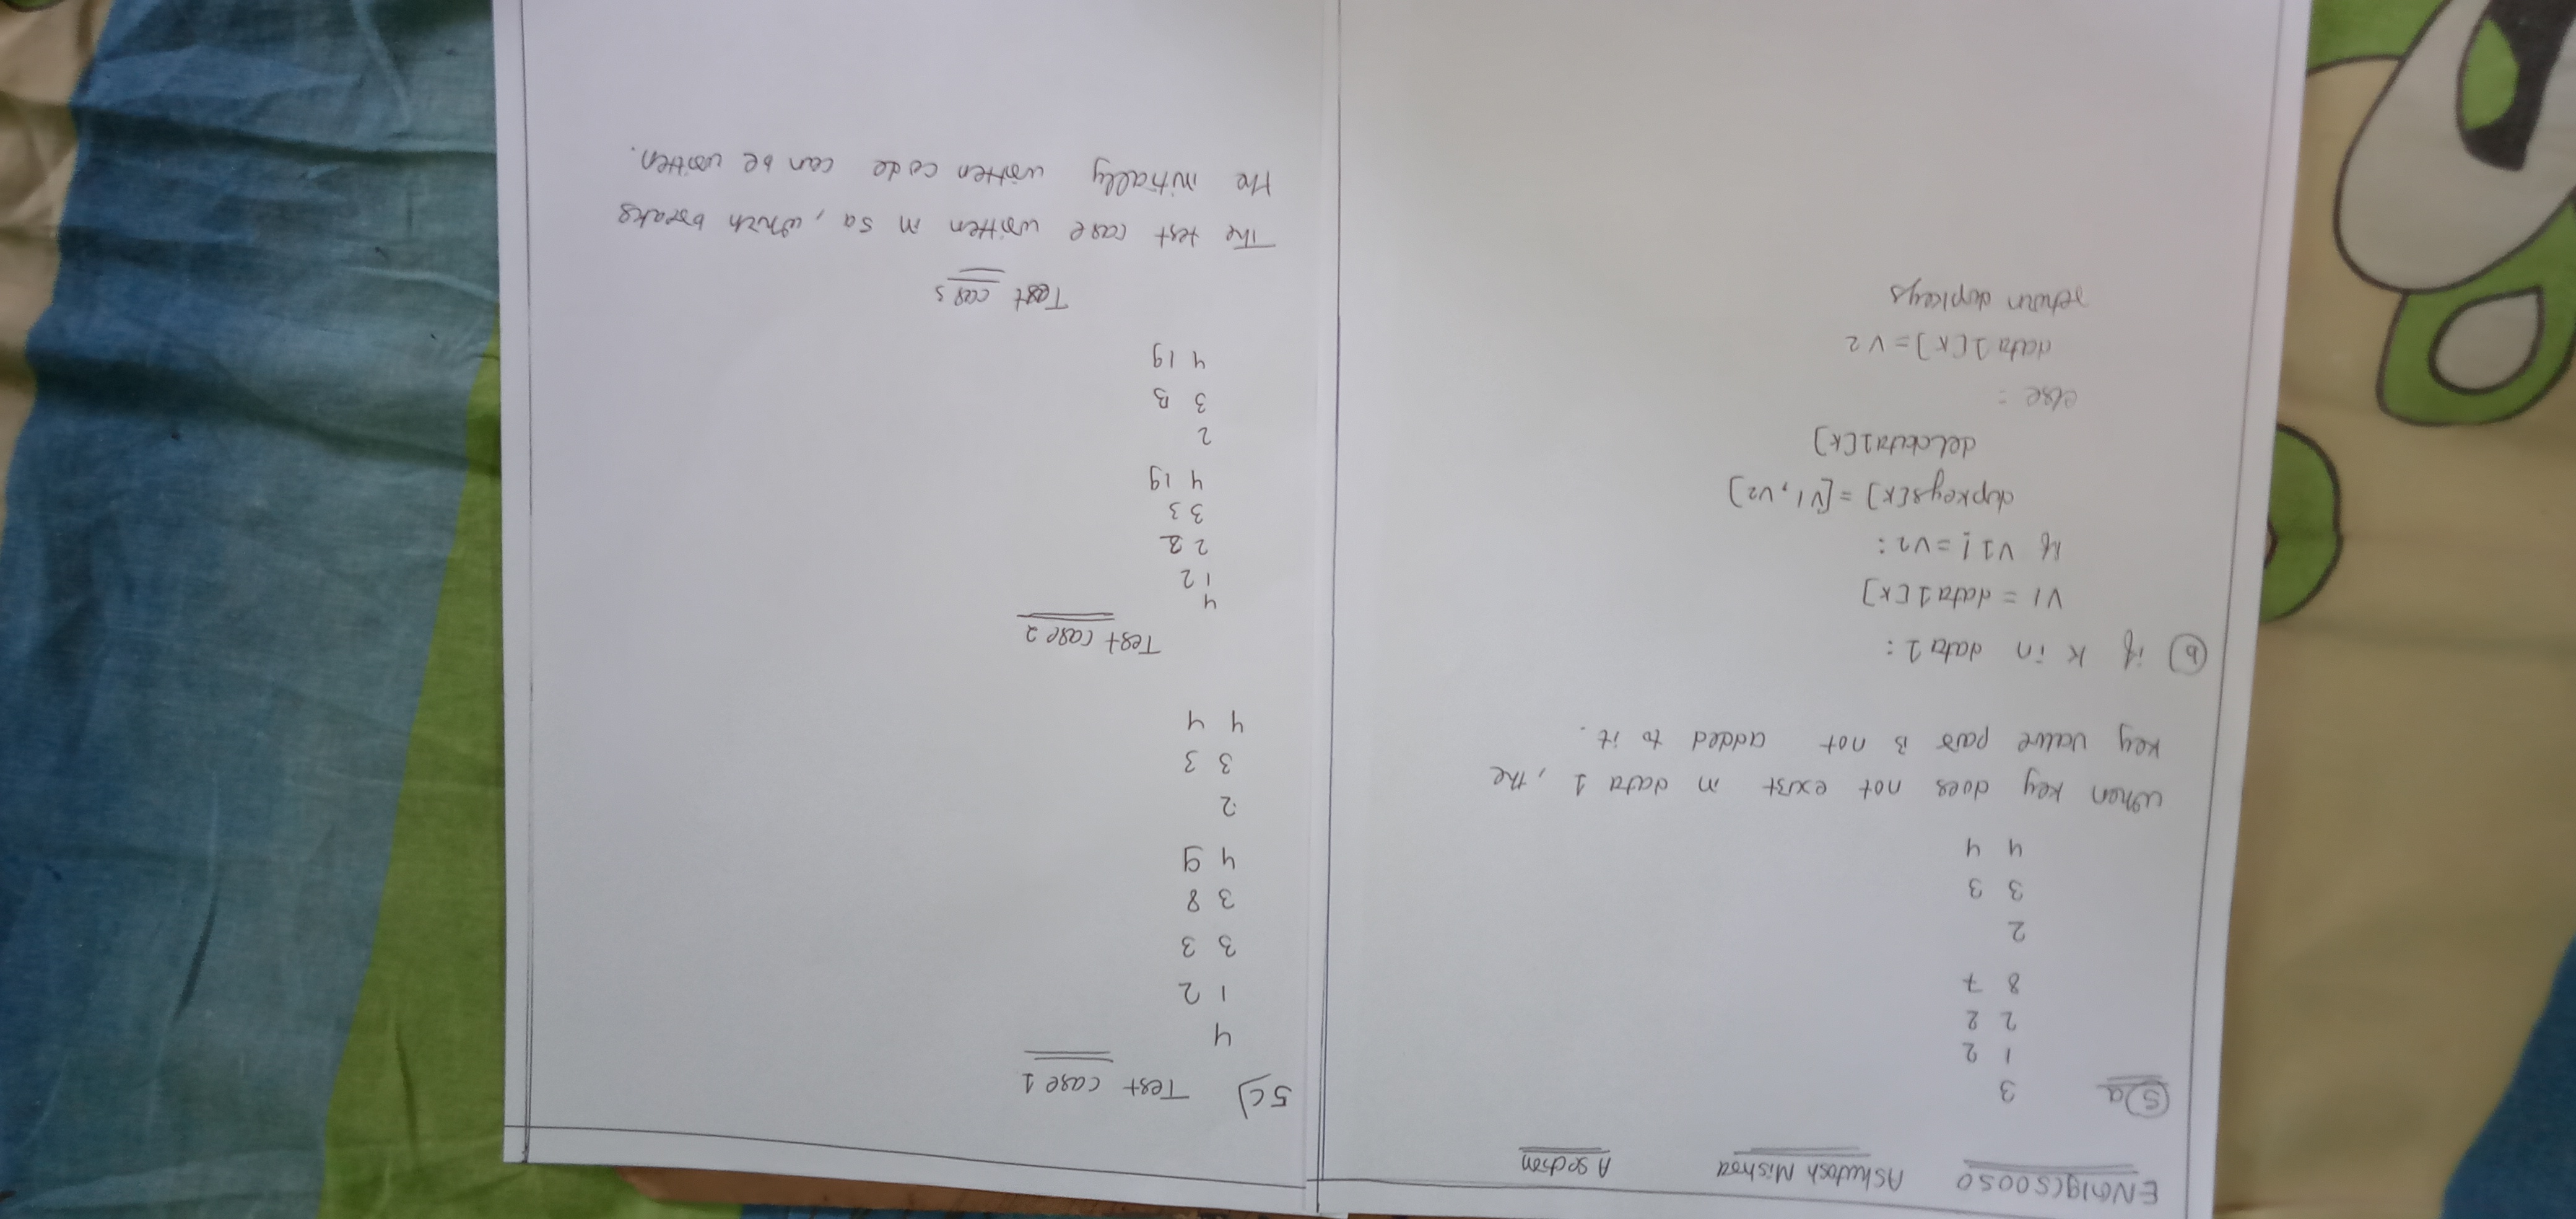 ENG19CS0050 Ashutosh Mishra A section
5)a 3
1 2
2 2
8 7
2
3 3
4 4
when key does not exist in data 1, the
key value pair is not added to it.
b) if k in data 1:
V1 = data1[k]
if V1! = V2:
dupkeys[k] = [V1, V2]
del data1[k]
else :
data 1[k] = V2
return dupkeys
5c) Test case 1
4
1 2
3 3
3 8
4 9
2
3 3
4 4
Test case 2
4
1 2
2 2
3 3
4 19
2
3 13
4 19
Test cas 3
The test case written in 5a, which breaks
the initially written code can be written.